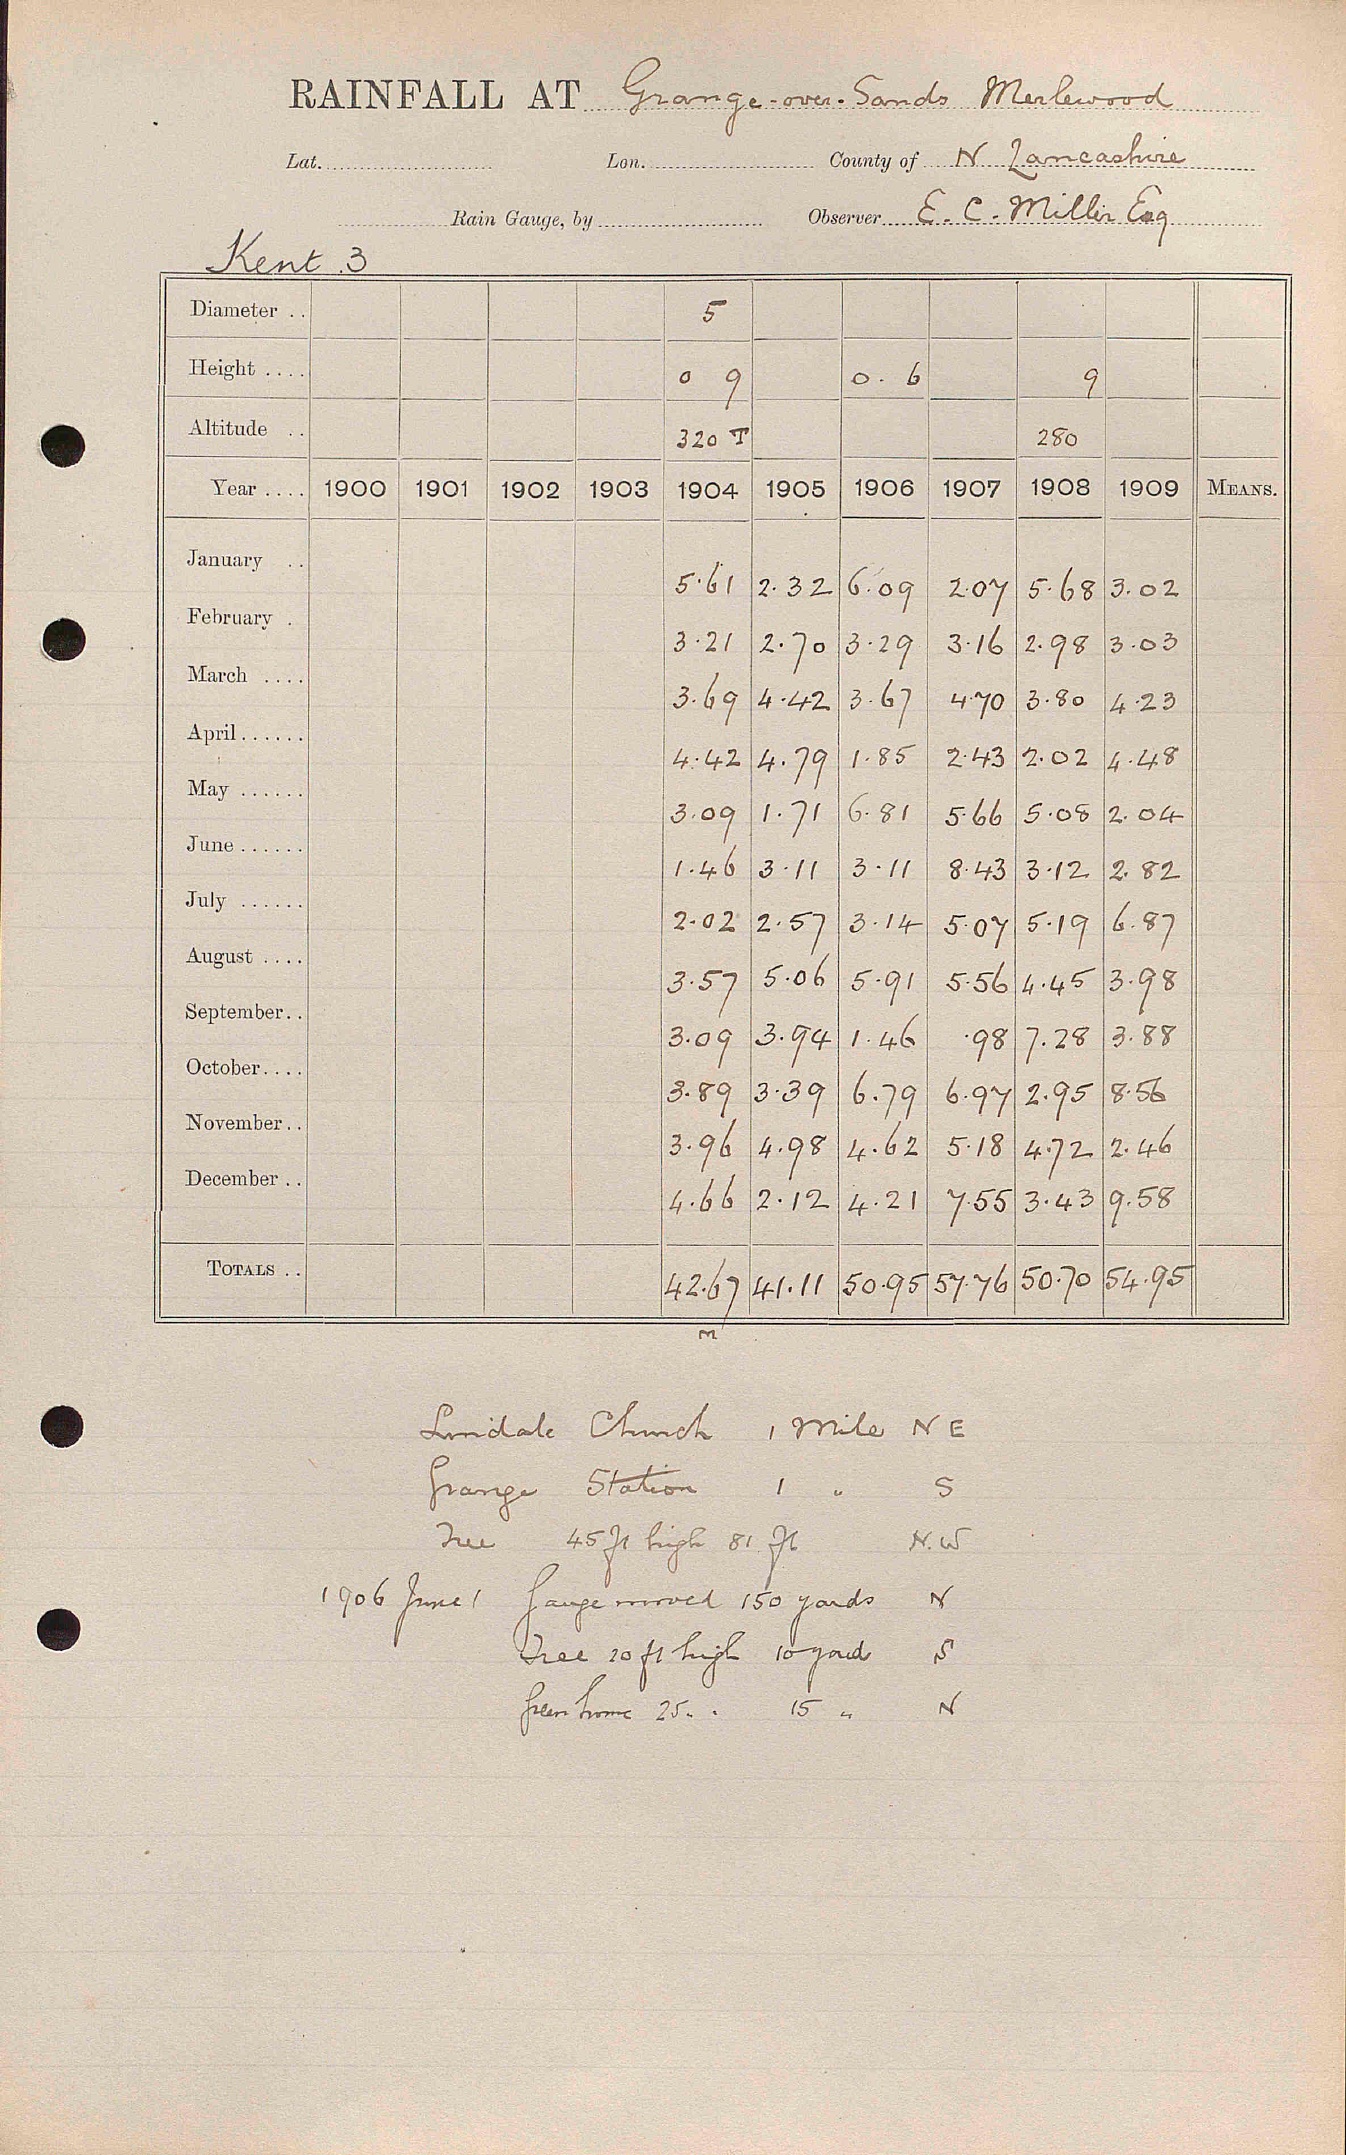 RAINFALL AT Grange-over-Sands Merlewood
Lat. Lon. County of N Lancashire
Rain Gauge, by Observer E. C. Miller Esq
Kent 3
Diameter .. 5
Height .... 0 9 0. 6 9
Altitude .. 320 T 280
Year .... 1900 1901 1902 1903 1904 1905 1906 1907 1908 1909 MEANS.
January .. 5.61 2.32 6.09 2.07 5.68 3.02
February . 3.21 2.70 3.29 3.16 2.98 3.03
March .... 3.69 4.42 3.67 4.70 3.80 4.23
April...... 4.42 4.79 1.85 2.43 2.02 4.48
May ...... 3.09 1.71 6.81 5.66 5.08 2.04
June...... 1.46 3.11 3.11 8.43 3.12 2.82
July ...... 2.02 2.57 3.14 5.07 5.19 6.87
August .... 3.57 5.06 5.91 5.56 4.45 3.98
September.. 3.09 3.94 1.46 .98 7.28 3.88
October.... 3.89 3.39 6.79 6.97 2.95 8.56
November.. 3.96 4.98 4.62 5.18 4.72 2.46
December .. 4.66 2.12 4.21 7.55 3.43 9.58
TOTALS .. 42.67 41.11 50.95 57.76 50.70 54.95
m
Lindale Church 1 Mile N E
Grange Station 1 " S
Tree 45 ft high 81 ft N.W
1906 June 1 Gauge moved 150 yards N
Tree 20 ft high 10 yards S
Greenhouse 25 " " 15 " N